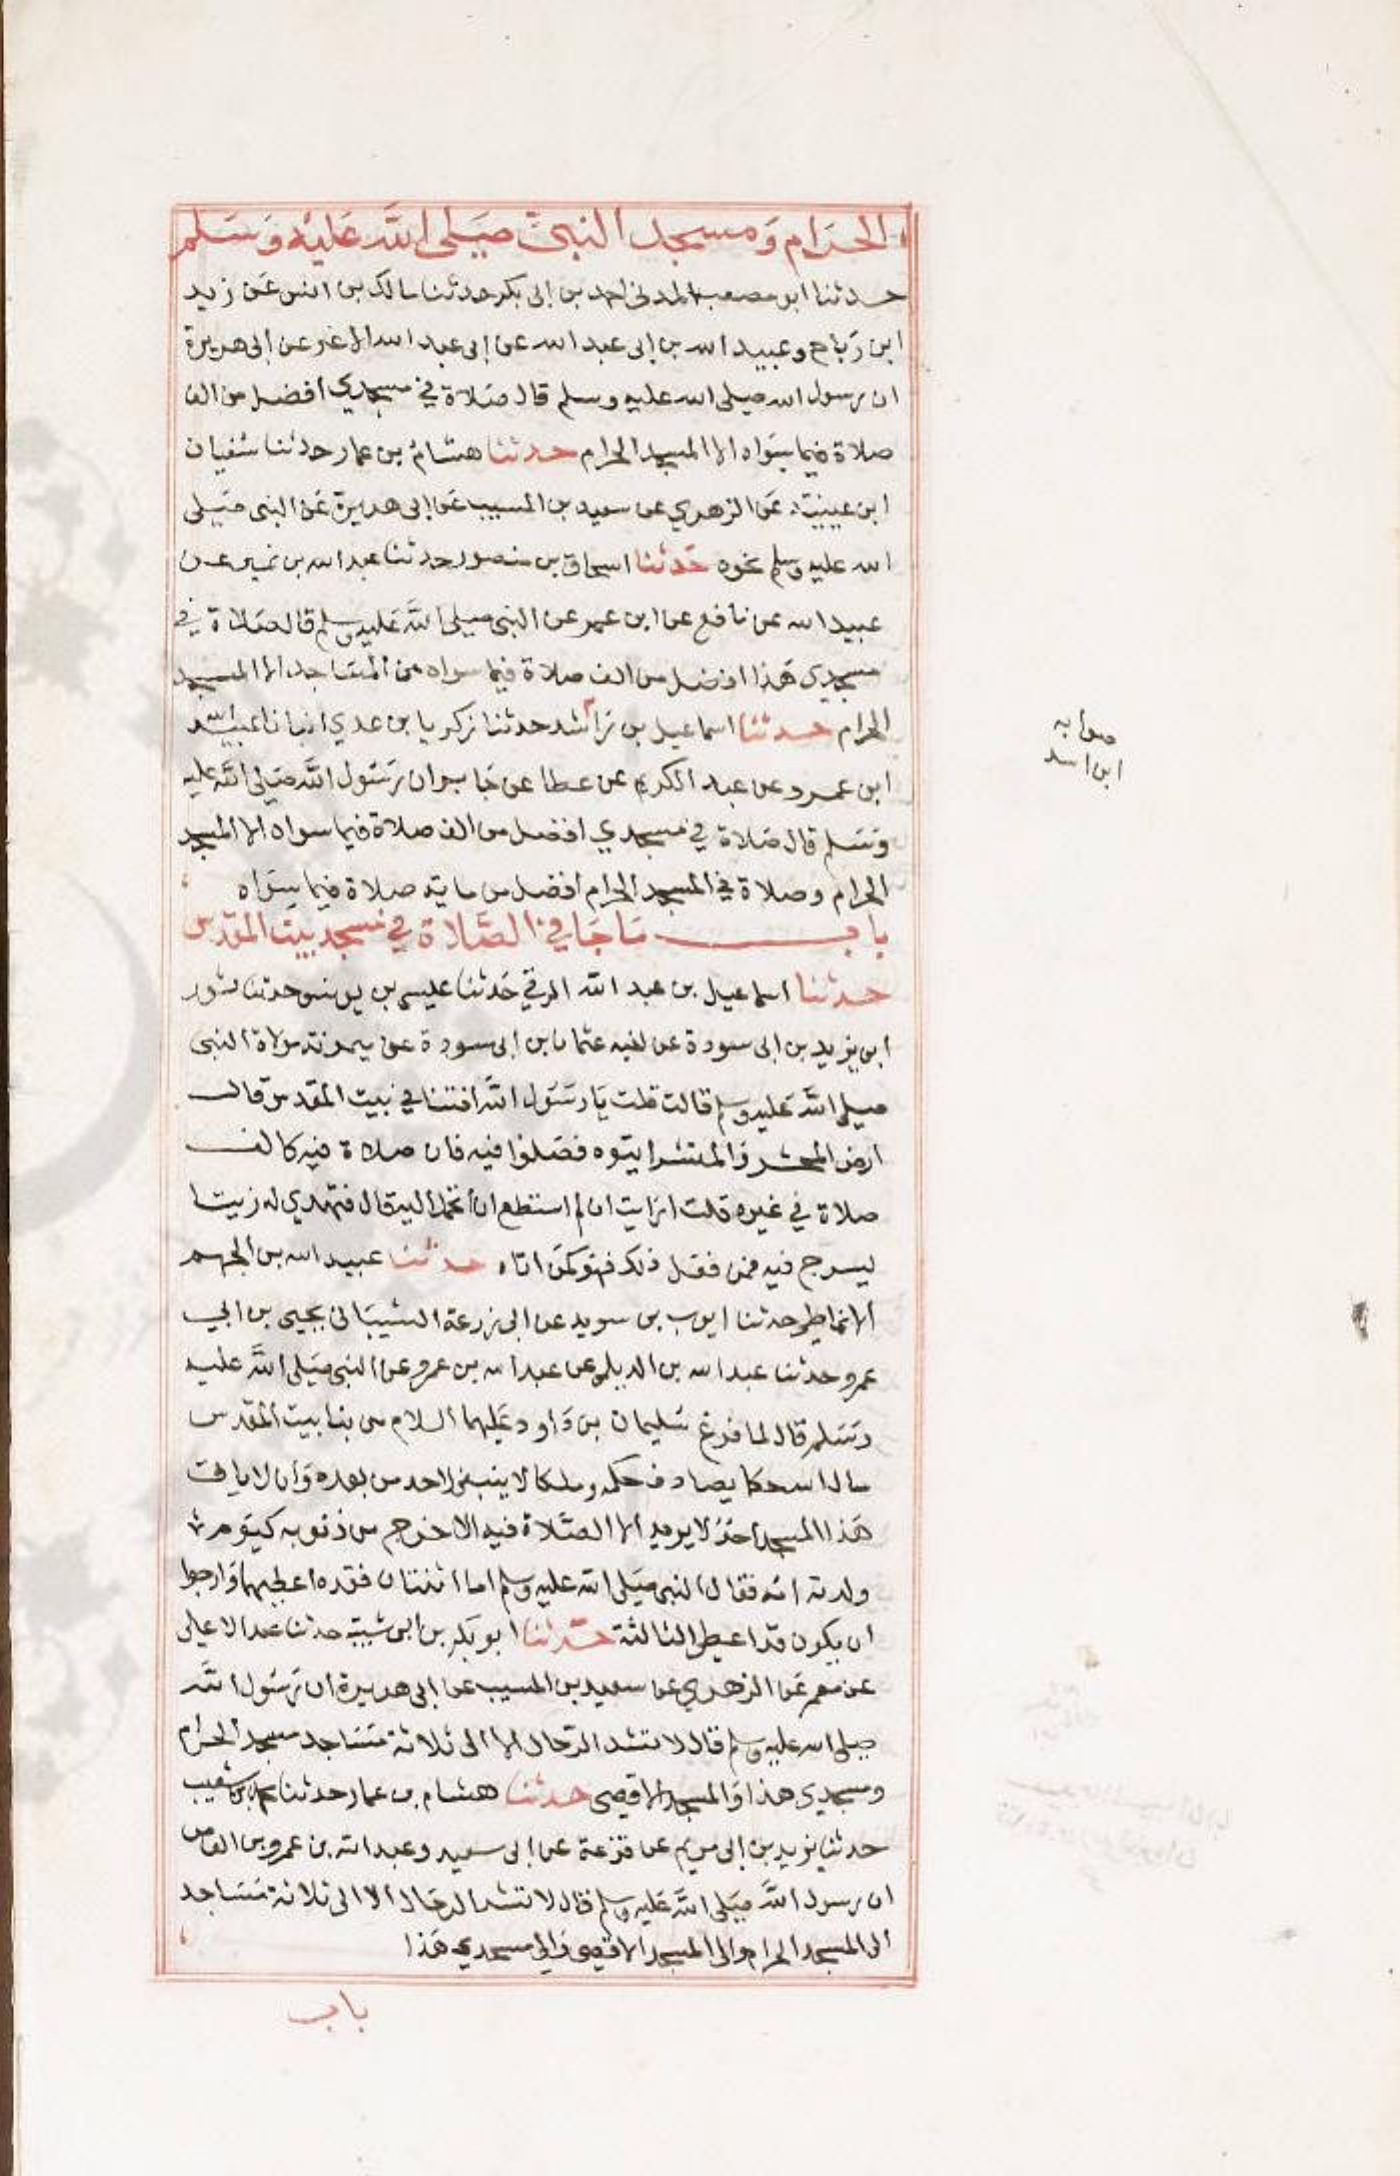 الحرام ومسجد النبي صلى الله عليه وسلم
حدثنا ابو مصعب المدني احمد بن ابي بكر حدثنا مالك بن انس عن زيد
ابن رباح وعبيد الله بن ابي عبد الله عن ابي عبد الله الاغر عن ابي هريرة
ان رسول الله صلى الله عليه وسلم قال صلاة في مسجدي افضل من الف
صلاة فيما سواه الا المسجد الحرام حدثنا هشام بن عمار حدثنا سفيان
ابن عيينة عن الزهري عن سعيد بن المسيب عن ابي هريرة عن النبي صلى
الله عليه وسلم نحوه حدثنا اسحاق بن منصور حدثنا عبد الله بن نمير عن
عبيد الله عن نافع عن ابن عمر عن النبي صلى الله عليه وسلم قال صلاة في
مسجدي هذا افضل من الف صلاة فيما سواه من المساجد الا المسجد
الحرام حدثنا اسماعيل بن راشد حدثنا زكريا بن عدي انبانا عبيد الله
ابن عمرو عن عبد الكريم عن عطا عن جابر ان رسول الله صلى الله عليه
وسلم قال صلاة في مسجدي افضل من الف صلاة فيما سواه الا المسجد
الحرام وصلاة في المسجد الحرام افضل من ماية صلاة فيما سواه
باب ما جا في الصلاة في مسجد بيت المقدس
حدثنا اسماعيل بن عبد الله الرقي حدثنا عيسى بن يونس حدثنا ثور
ابن يزيد بن ابي سودة عن اخيه عثمان بن ابي سودة عن ميمونة مولاة النبي
صلى الله عليه وسلم قالت قلت يا رسول الله افتنا في بيت المقدس قال
ارض المحشر والمنشر ايتوه فصلوا فيه فان صلاة فيه كالف
صلاة في غيره قلت ارايت ان لم استطع ان اتحمل اليه قال فتهدي له زيتا
ليسرج فيه فمن فعل ذلك فهو كمن اتاه حدثنا عبيد الله بن الجهم
الانماطي حدثنا ايوب بن سويد عن ابي زرعة الشيباني يحيى بن ابي
عمرو حدثنا عبد الله بن الديلمي عن عبد الله بن عمرو عن النبي صلى الله عليه
وسلم قال لما فرغ سليمان بن داود عليهما السلام من بنا بيت المقدس
سال الله حكما يصادف حكمه وملكا لا ينبغي لاحد من بعده وان لا ياتي
هذا المسجد احد لا يريد الا الصلاة فيه الا خرج من ذنوبه كيوم
ولدته امه فقال النبي صلى الله عليه وسلم اما اثنتان فقد اعطيهما وارجوا
ان يكون قد اعطي الثالثة حدثنا ابو بكر بن ابي شيبة حدثنا عبد الاعلى
عن معمر عن الزهري عن سعيد بن المسيب عن ابي هريرة ان رسول الله
صلى الله عليه وسلم قال لا تشد الرحال الا الى ثلاثة مساجد مسجد الحرام
ومسجدي هذا والمسجد الاقصى حدثنا هشام بن عمار حدثنا محمد بن شعيب
حدثنا يزيد بن ابي مريم عن قزعة عن ابي سعيد وعبد الله بن عمرو بن العاص
ان رسول الله صلى الله عليه وسلم قال لا تشد الرحال الا الى ثلاثة مساجد
الى المسجد الحرام والى المسجد الاقصى والى مسجدي هذا
باب
صوابه
ابن اسد